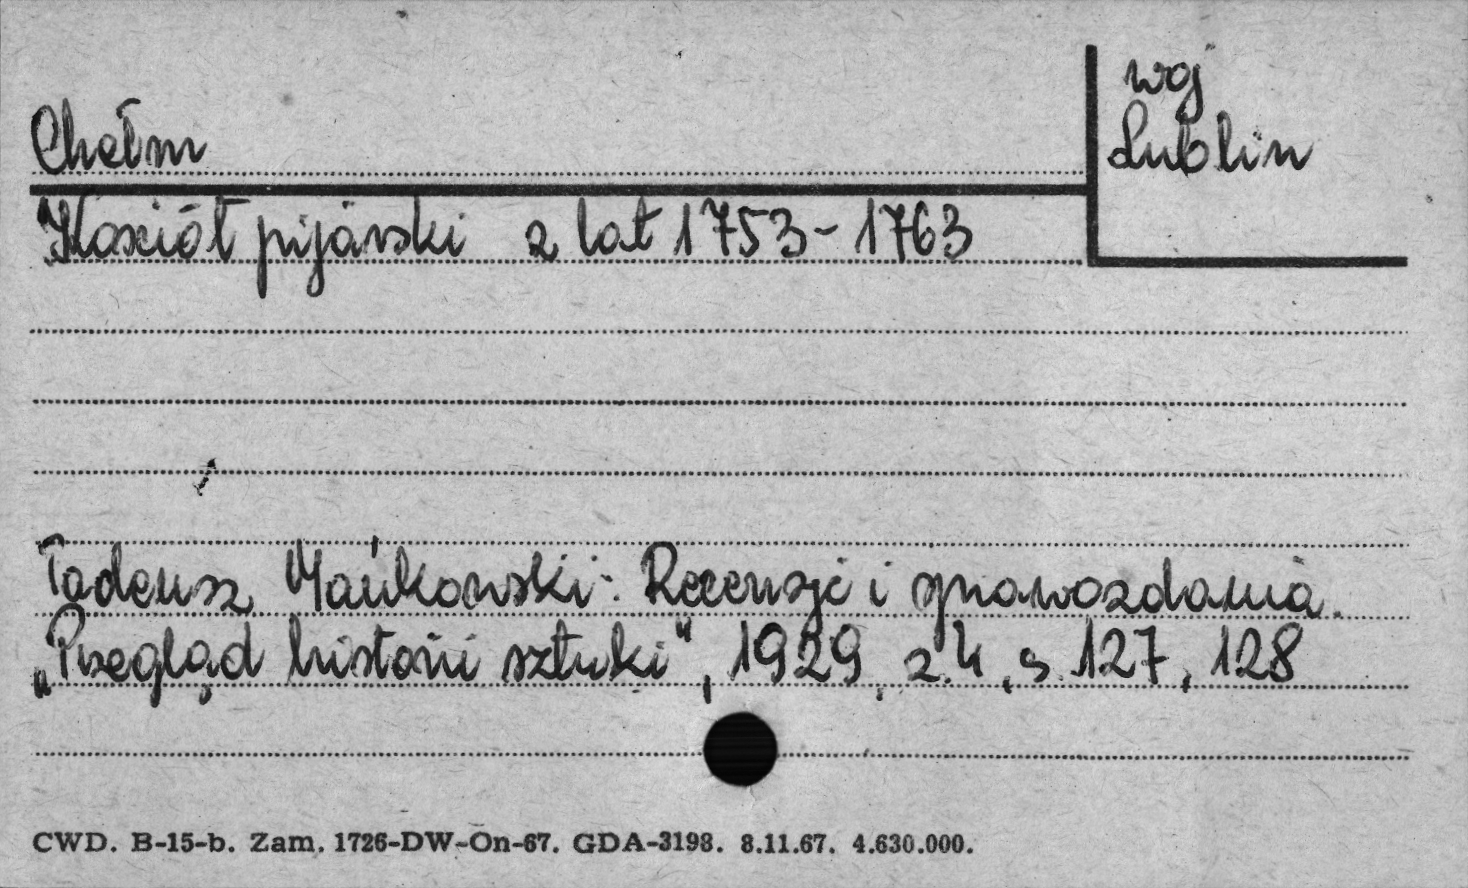 woj
Lublin
Chełm
Kościół pijarski z lat 1753-1763
Tadeusz Mańkowski: Recenzje i sprawozdania.
„Przegląd historii sztuki", 1929, z.4, s. 127, 128
CWD. B-15-b. Zam. 1726-DW-On-67. GDA-3198. 8.11.67. 4.630.000.